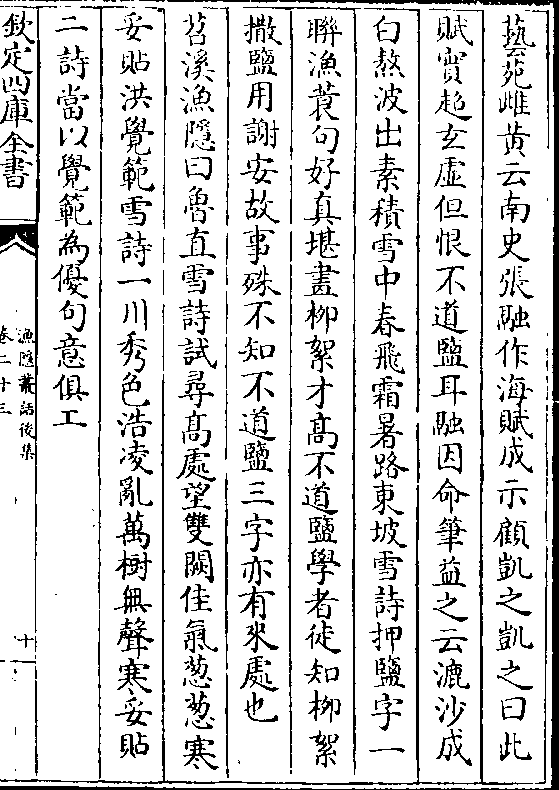 藝苑雌黄云南史張融作海賦成示顧凱之凱之曰此
賦實超玄虛但恨不道鹽耳融因命筆益之云漉沙成
白熬波出素積雪中春飛霜暑路東坡雪詩押鹽字一
聯漁蓑句好真堪畫柳絮才髙不道鹽學者徒知柳絮
撒鹽用謝安故事殊不知不道鹽三字亦有來處也
苕溪漁隱曰魯直雪詩試尋髙處望雙闕佳氣葱葱寒
妥貼洪覺範雪詩一川秀色浩凌亂萬樹無聲寒妥貼
二詩當以覺範為優句意俱工
欽定四庫全書
漁隱叢話後集
卷二十三
十